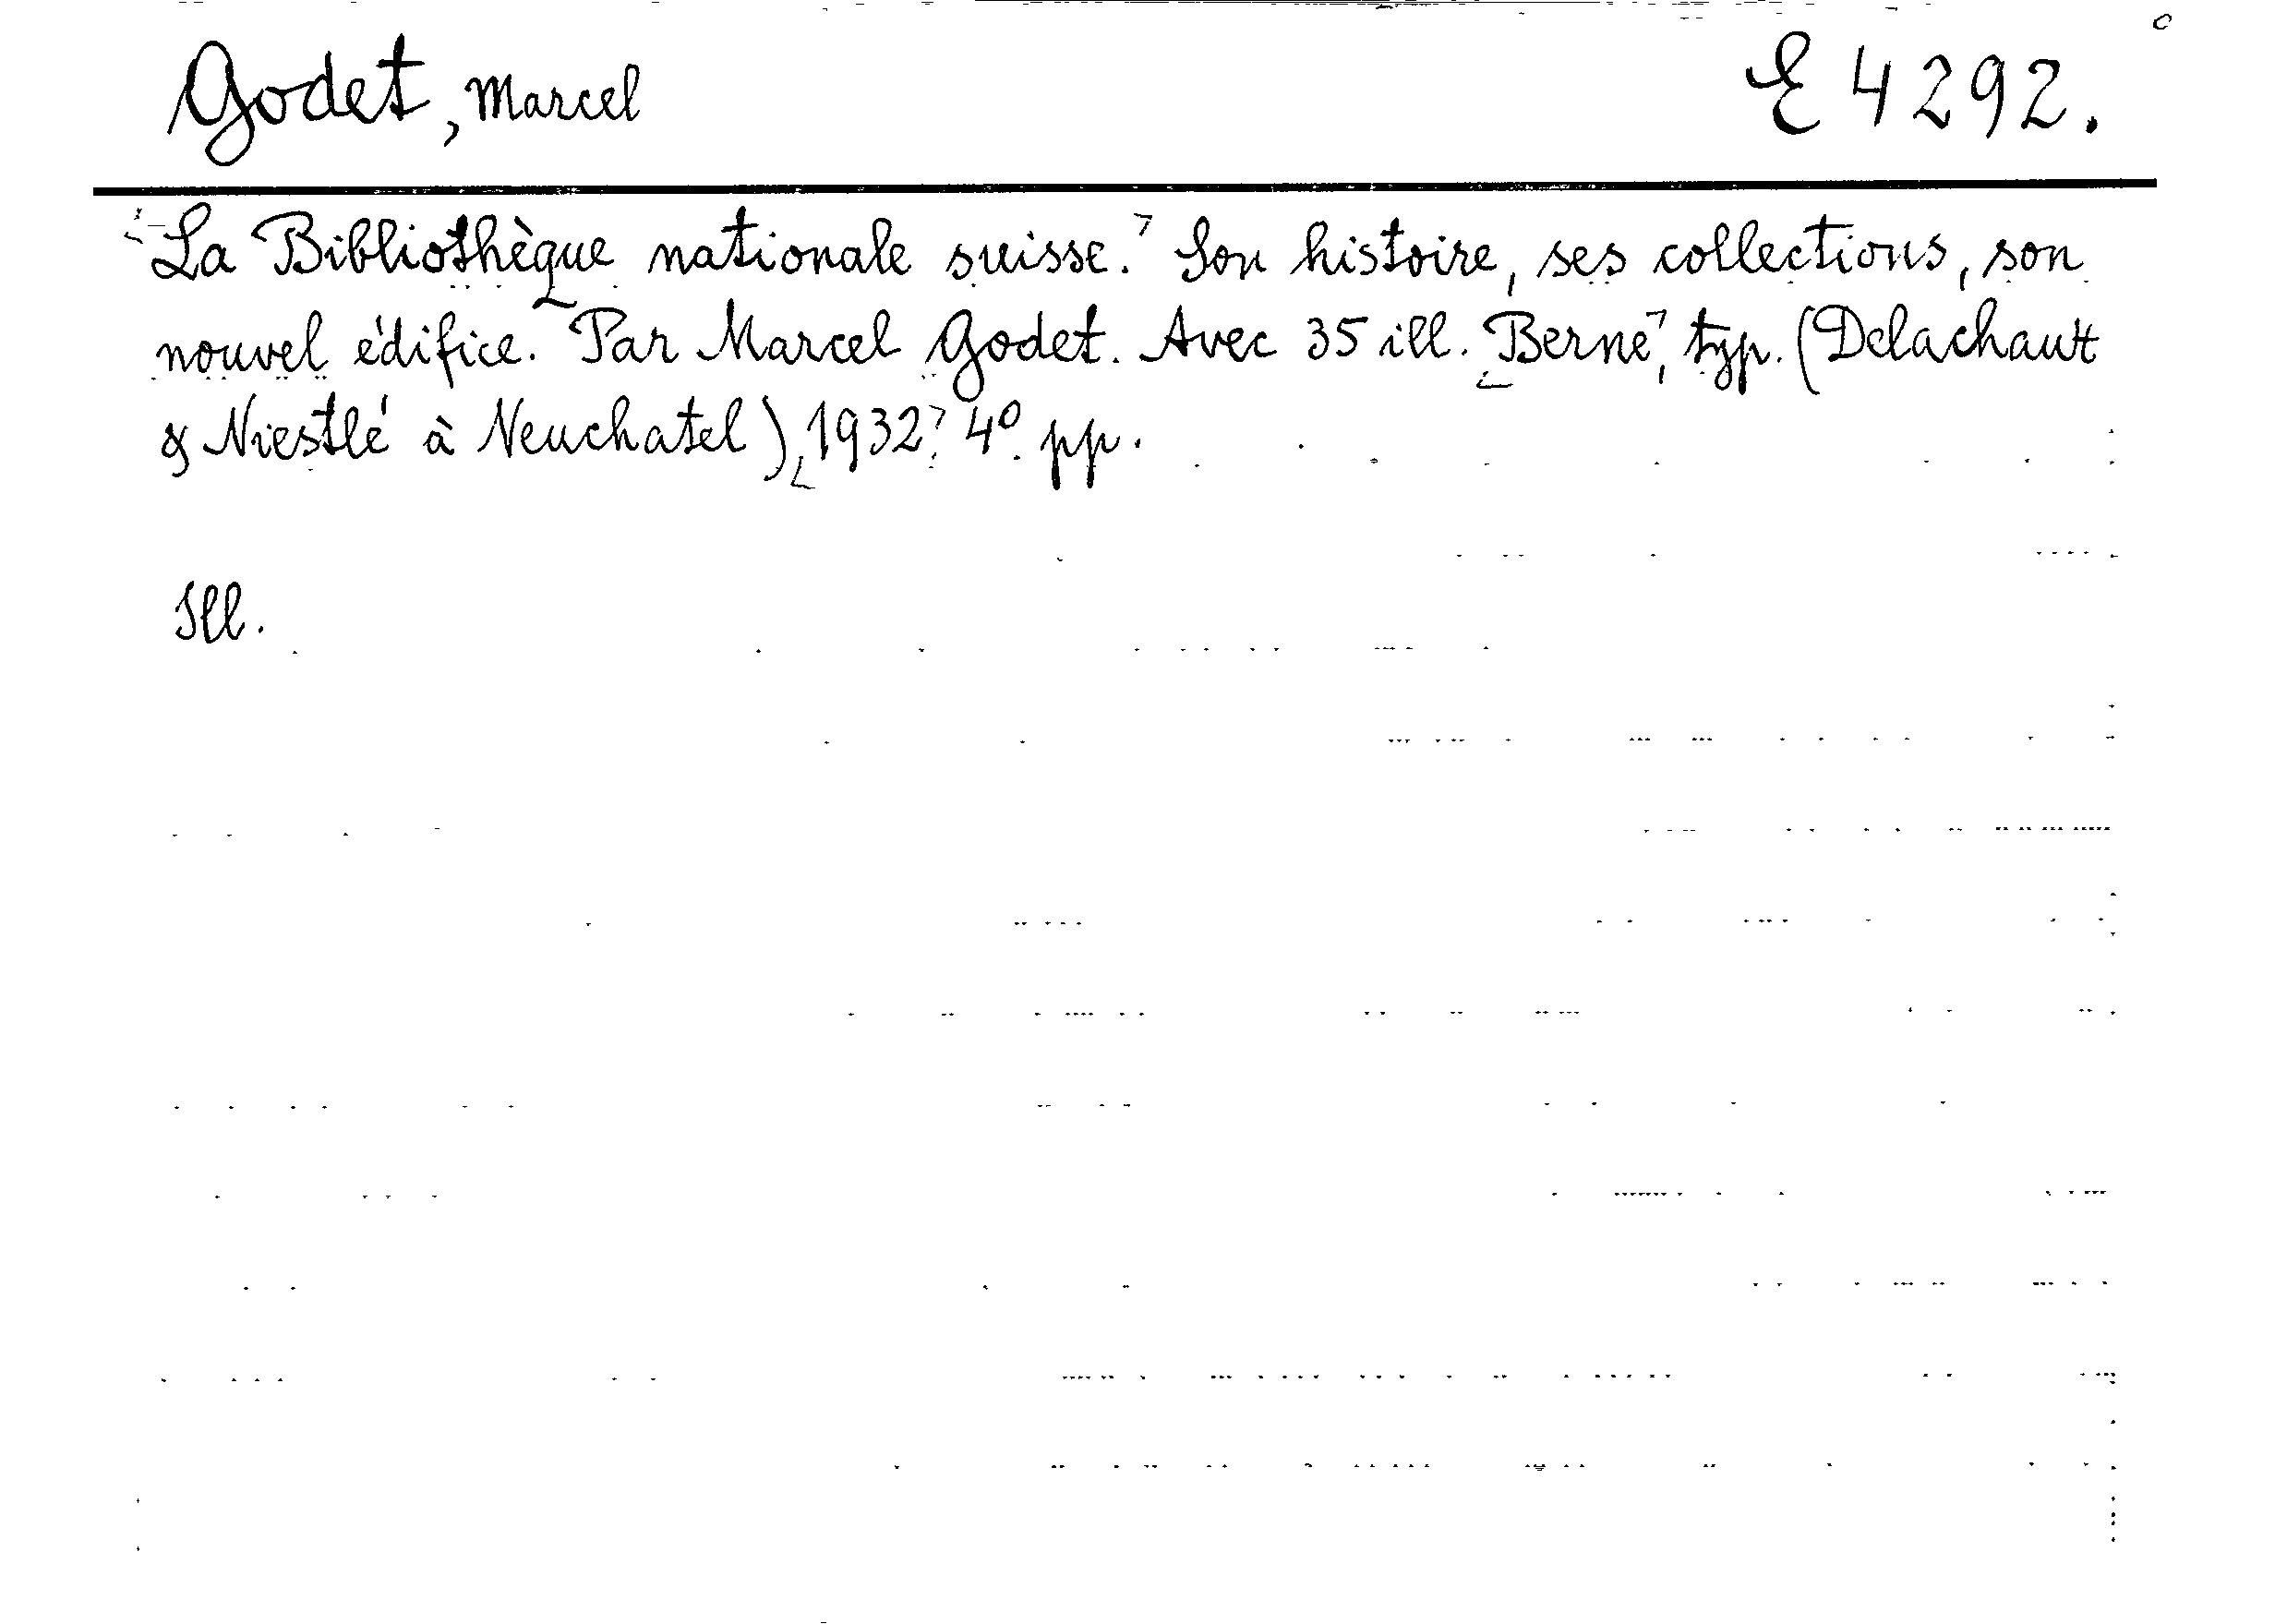 Godet, Marcel
E 4292.
La Bibliothèque nationale suisse. Son histoire, ses collections, son
nouvel édifice. Par Marcel Godet. Avec 35 ill. Berne, typ. (Delachaux
& Niestlé à Neuchatel), 1932. 4º. pp.
Ill.